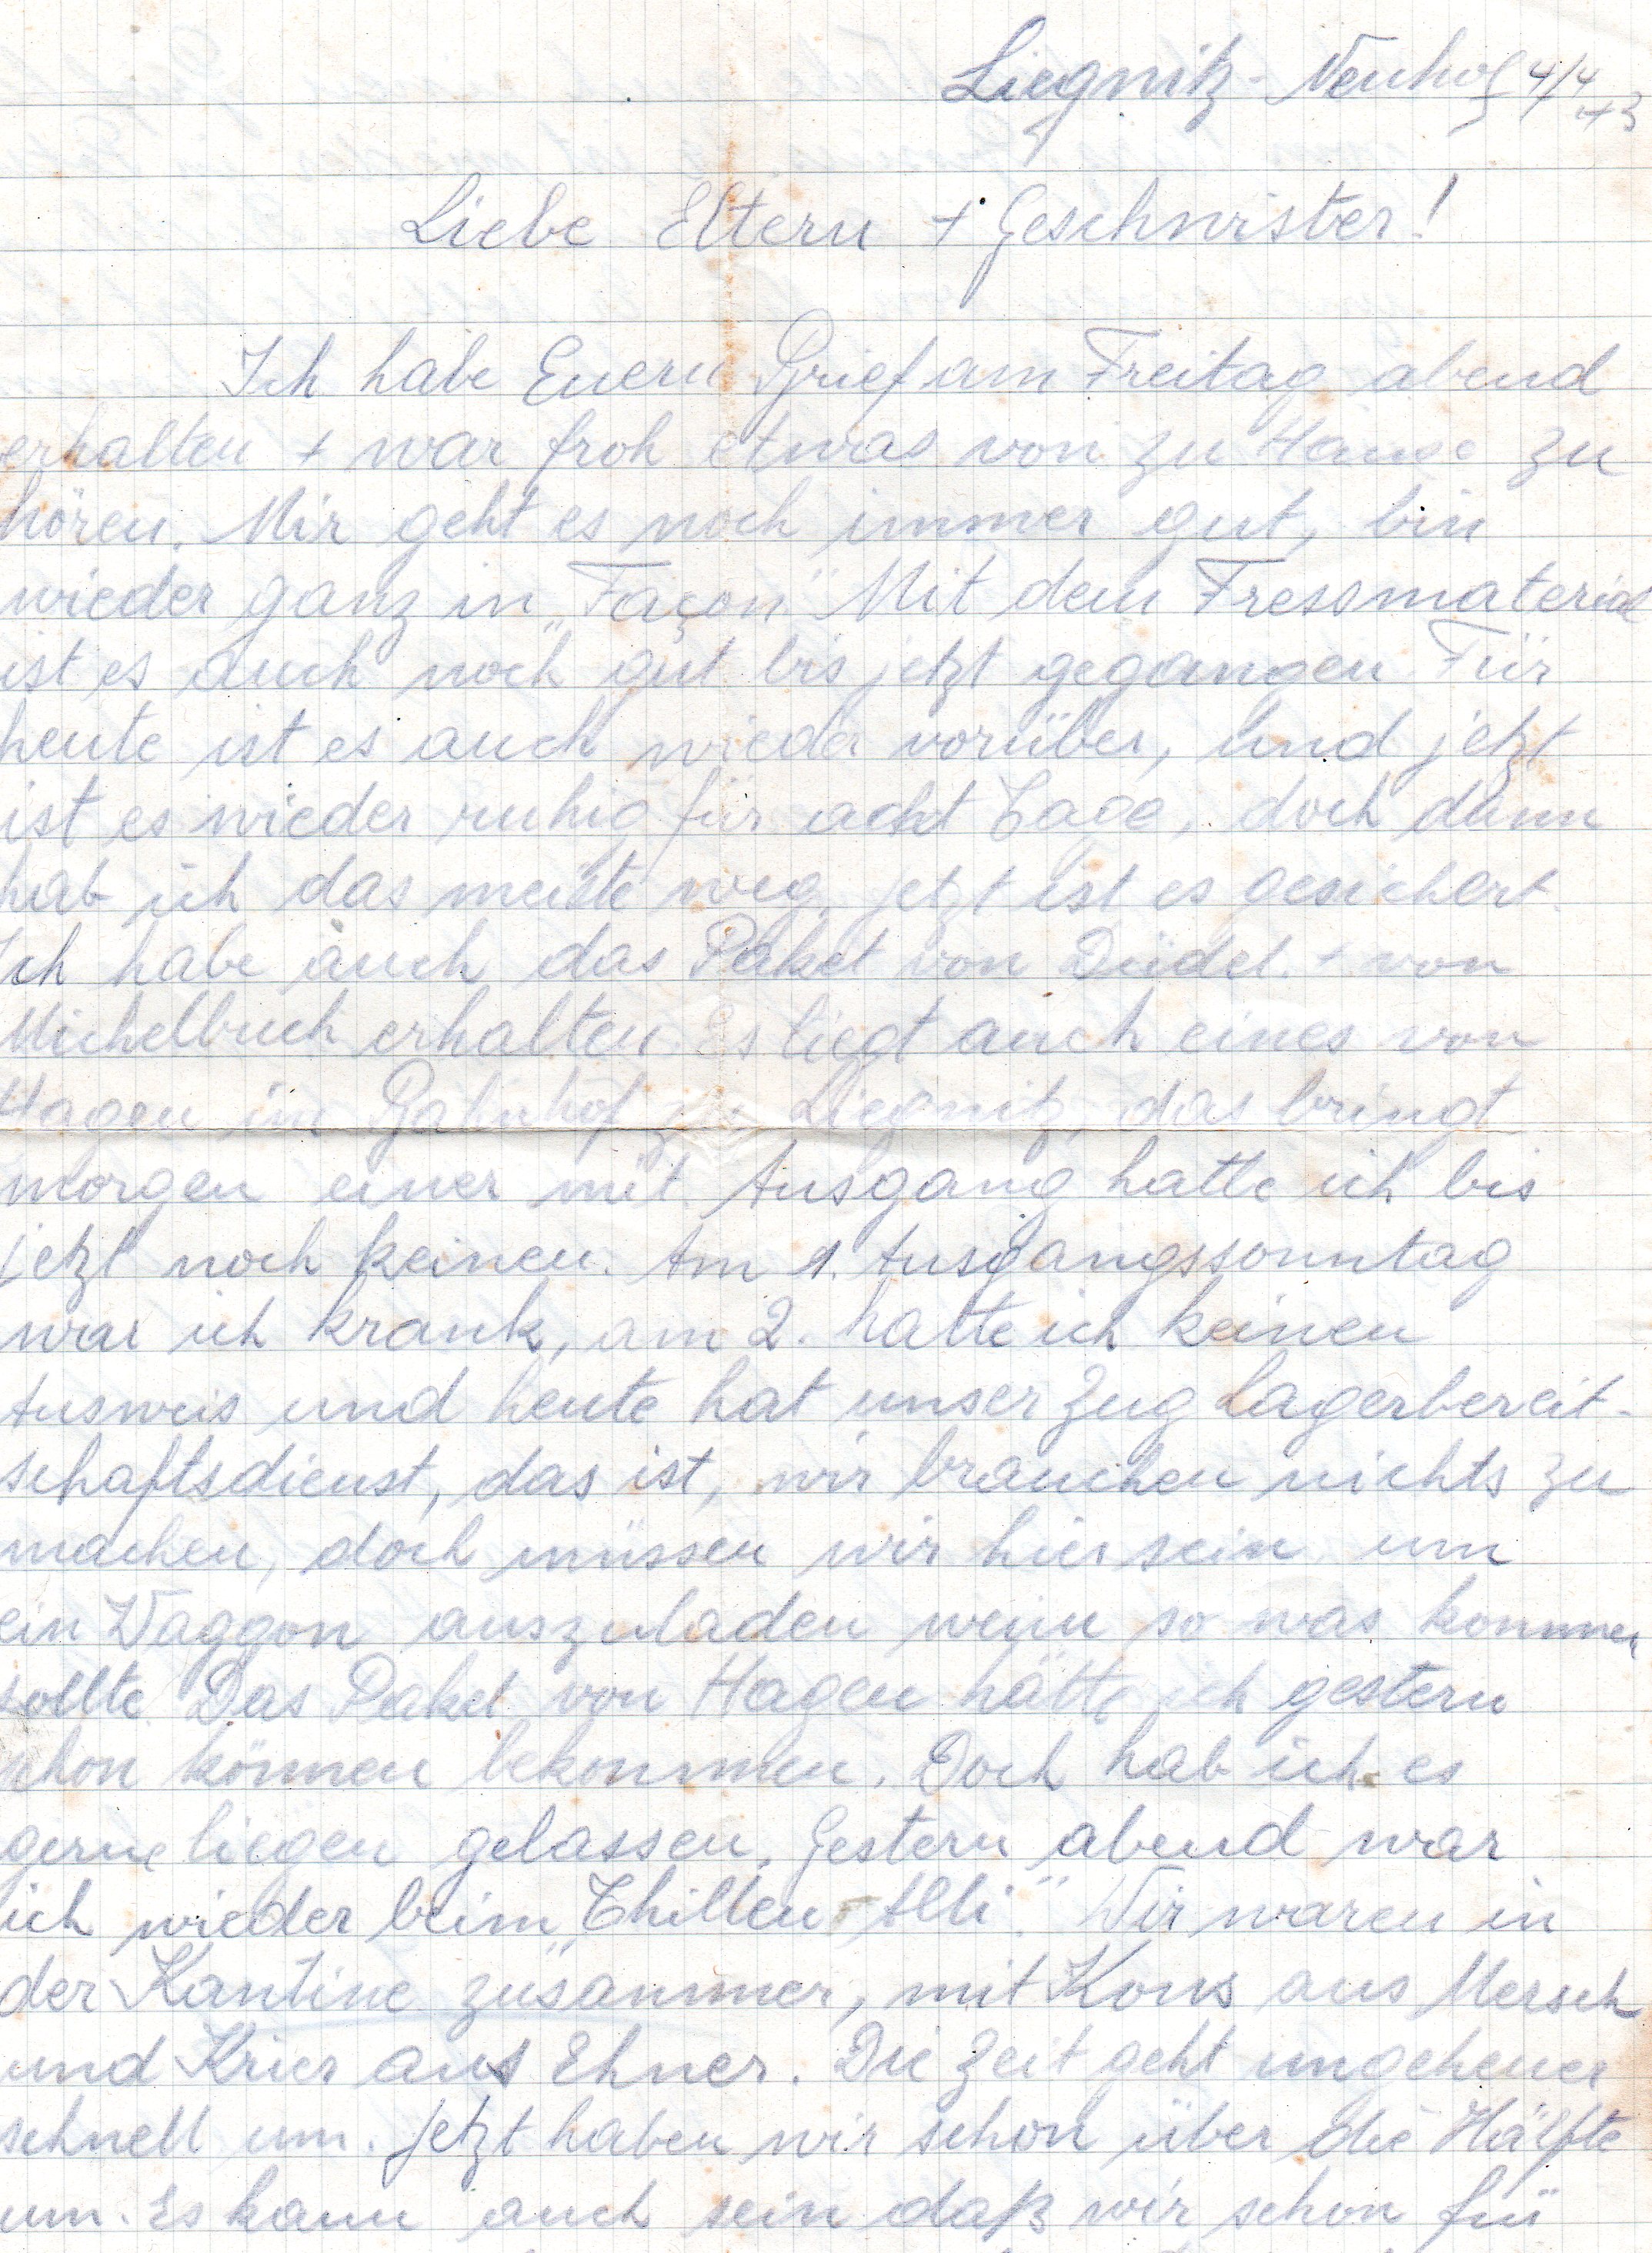 Liegnitz-Neuhof 4/4 43
Liebe Eltern + Geschwister!
Ich habe Euern Brief am Freitag abend
erhalten + war froh etwas von zu Hause zu
hören. Mir geht es noch immer gut, bin
wieder ganz in „Façon" Mit dem Fressmaterial
ist es auch noch gut bis jetzt gegangen Für
heute ist es auch wieder vorüber, und jetzt
ist es wieder ruhig für acht Tage, doch dann
hab ich das meiste weg, jetzt ist es gesichert.
Ich habe auch das Paket von Düdel. + von
Michelbuch erhalten. Es liegt auch eines von
Hagen im Bahnhof zu Liegnitz, das bringt
morgen einer mit. Ausgang hatte ich bis
jetzt noch keinen. Am 1. Ausgangssonntag
war ich krank, am 2. hatte ich keinen
Ausweis und heute hat unser Zug Lagerbereit-
schaftsdienst, das ist, wir brauchen nichts zu
machen, doch müssen wir hier sein um
ein Waggon auszuladen wenn so was kommen
sollte. Das Paket von Hagen hätte ich gestern
schon können bekommen. Doch hab ich es
gerne liegen gelassen. Gestern abend war
ich wieder beim „Thillen Alli". Wir waren in
der Kantine zusammen, mit Kons aus Mersch
und Krier aus Ehner. Die Zeit geht ungeheuer
schnell um. Jetzt haben wir schon über die Hälfte
um. Es kann auch sein daß wir schon für